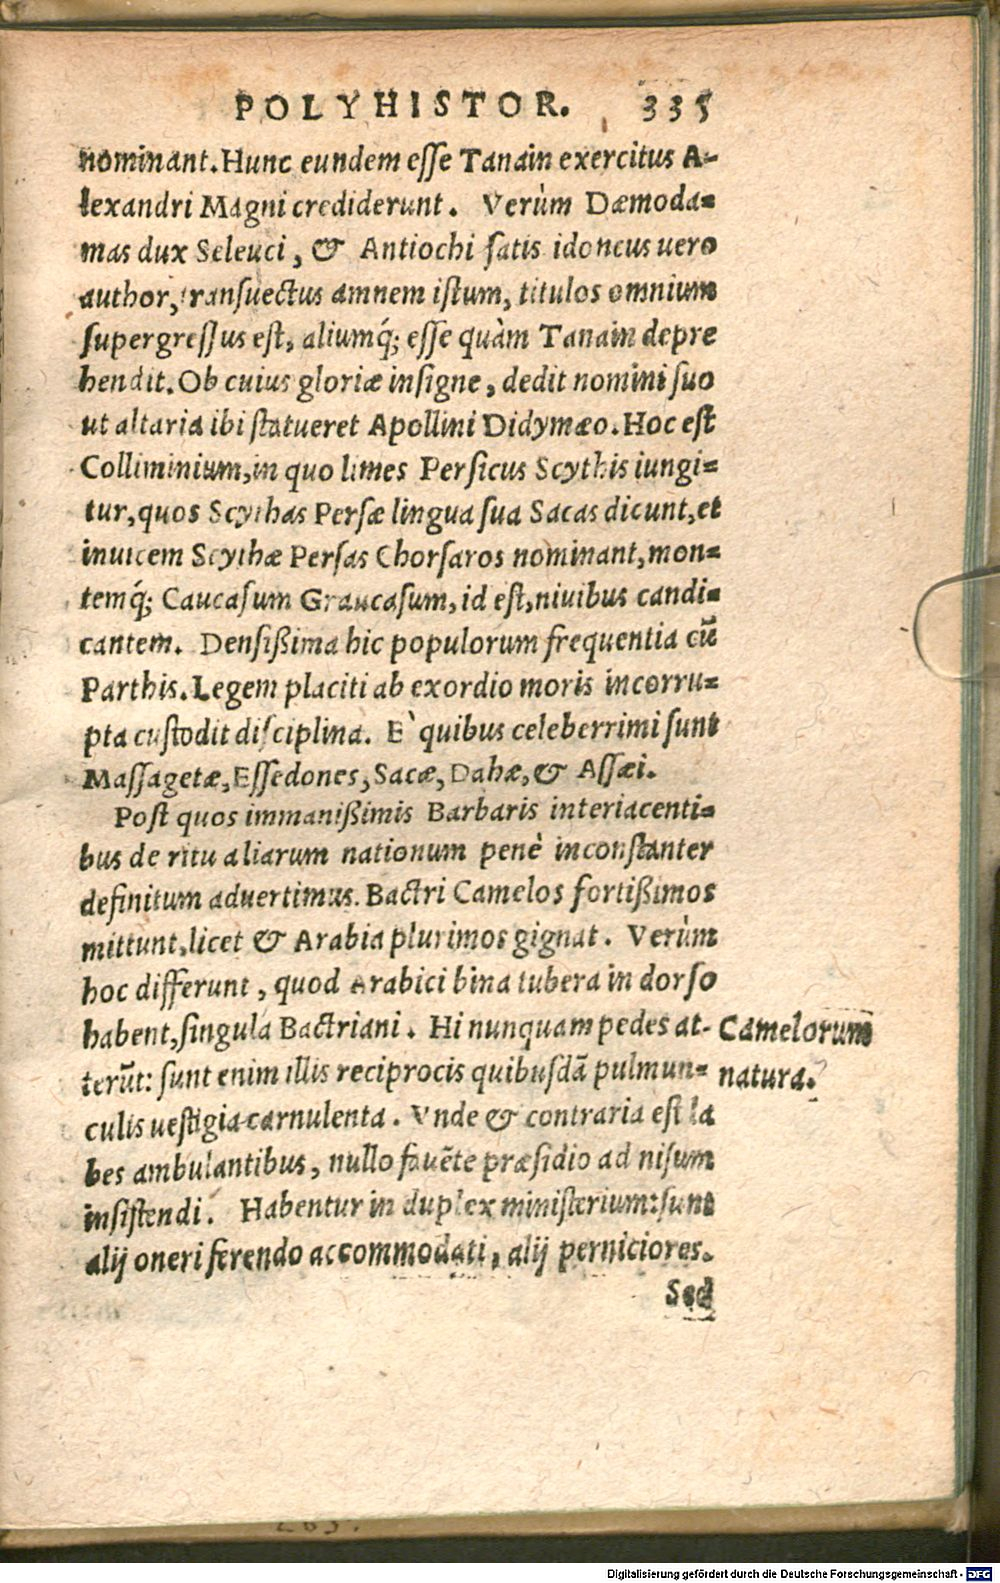 POLYHISTOR. 335
nominant. Hunc eundem esse Tanain exercitus A-
lexandri Magni crediderunt. Verùm Dæmoda-
mas dux Seleuci, & Antiochi satis idoneus uero
author, transuectus amnem istum, titulos omnium
supergressus est, aliumq́; esse quàm Tanain depre
hendit. Ob cuius gloriæ insigne, dedit nomini suo
ut altaria ibi statueret Apollini Didymæo. Hoc est
Colliminium, in quo limes Persicus Scythis iungi-
tur, quos Scythas Persæ lingua sua Sacas dicunt, et
inuicem Scythæ Persas Chorsaros nominant, mon-
temq́; Caucasum Graucasum, id est, niuibus candi-
cantem. Densißima hic populorum frequentia cū
Parthis. Legem placiti ab exordio moris incorru-
pta custodit disciplina. E` quibus celeberrimi sunt
Massagetæ, Essedones, Sacæ, Dahæ, & Assæi.
Post quos immanißimis Barbaris interiacenti-
bus de ritu aliarum nationum penè inconstanter
definitum aduertimus. Bactri Camelos fortißimos
mittunt, licet & Arabia plurimos gignat. Verùm
hoc differunt, quod Arabici bina tubera in dorso
habent, singula Bactriani. Hi nunquam pedes at-
terūt: sunt enim illis reciprocis quibusdā pulmun-
culis uestigia carnulenta. Vnde & contraria est la
bes ambulantibus, nullo fauēte præsidio ad nisum
insistendi. Habentur in duplex ministerium: sunt
alij oneri ferendo accommodati, alij perniciores.
Sed
Camelorum
natura.
Digitalisierung gefördert durch die Deutsche Forschungsgemeinschaft - DFG